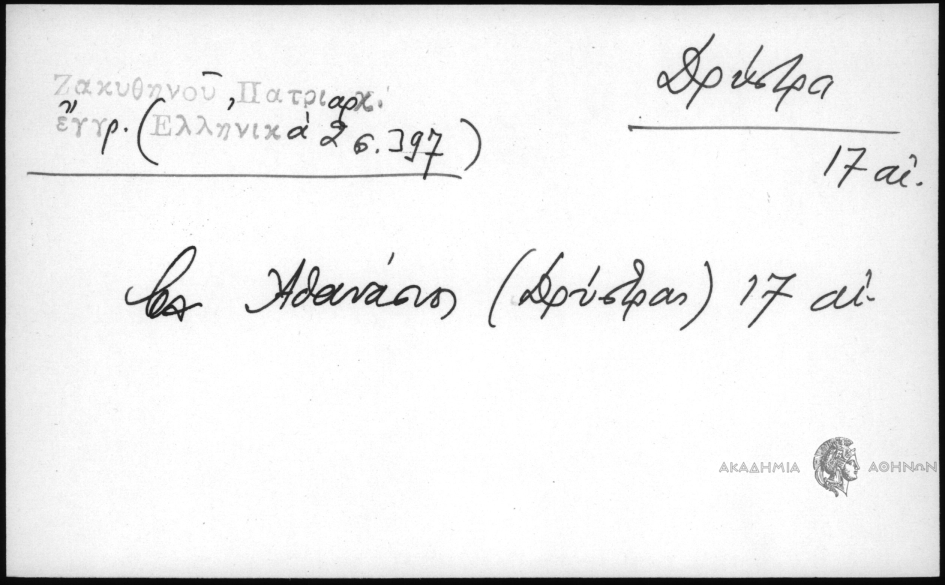 Ζακυθηνοῦ, Πατριαρχ.
ἔγγρ. (Ἑλληνικά 2 σ. 397)
Δρύστρα
17 αἰ.
Ἀθανάσιος (Δρύστρας) 17 αἰ.
ΑΚΑΔΗΜΙΑ ΑΘΗΝΩΝ